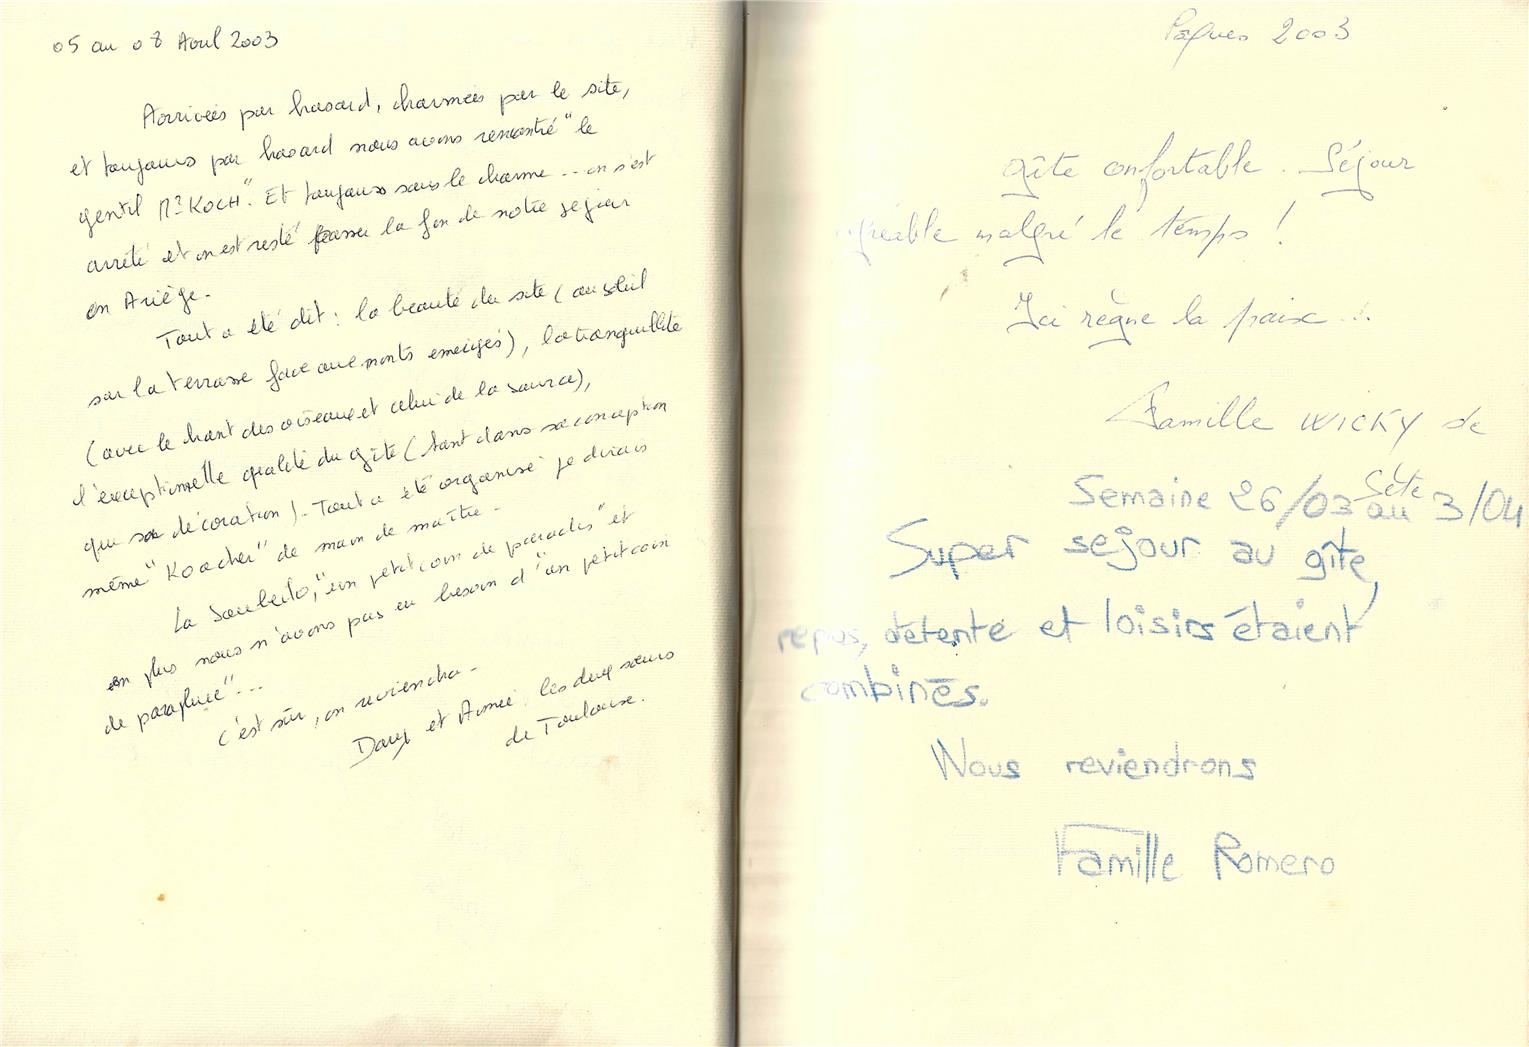 05 au 08 Avril 2003
Arrivées par hasard, charmées par le site,
et toujours par hasard nous avons rencontré "le
gentil Mr KOCH". Et toujours sous le charme... on s'est
arrêté et on est resté passer la fin de notre séjour
en Ariège.
Tout a été dit : la beauté du site (au soleil
sur la terrasse face aux monts enneigés), la tranquillité
(avec le chant des oiseaux et celui de la source),
l'exceptionnelle qualité du gîte (tant dans sa conception
que sa décoration). Tout a été organisé je dirais
même "Koacher" de main de maître.
La "un petit coin de paradis" et
en plus nous n'avons pas eu besoin d'"un petit coin
de parapluie"...
C'est sûr, on reviendra.
Dany et les deux soeurs
de Toulouse.
Pâques 2003
gîte confortable. Séjour
agréable malgré le temps !
Ici règne la paix...
Famille WICKY de
Sète
Semaine 26/03 au 3/04
Super sejour au gîte,
repos, détente et loisirs étaient
combinés.
Nous reviendrons
Famille Romero